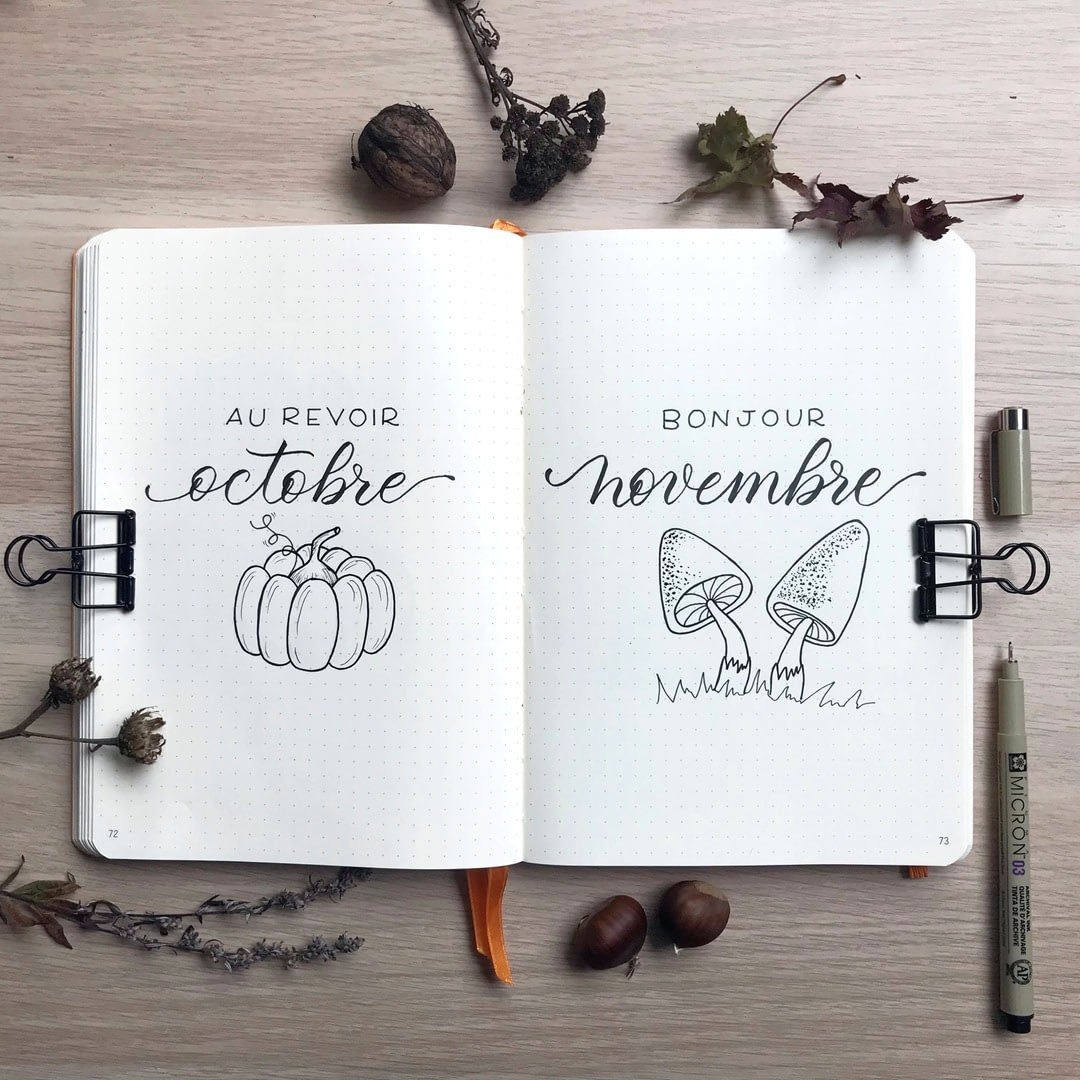 AU REVOIR
octobre
72
BONJOUR
novembre
73
MICRON 03
ARCHIVAL INK
QUALITÉ D'ARCHIVAGE
TINTA DE ARCHIVE
AP